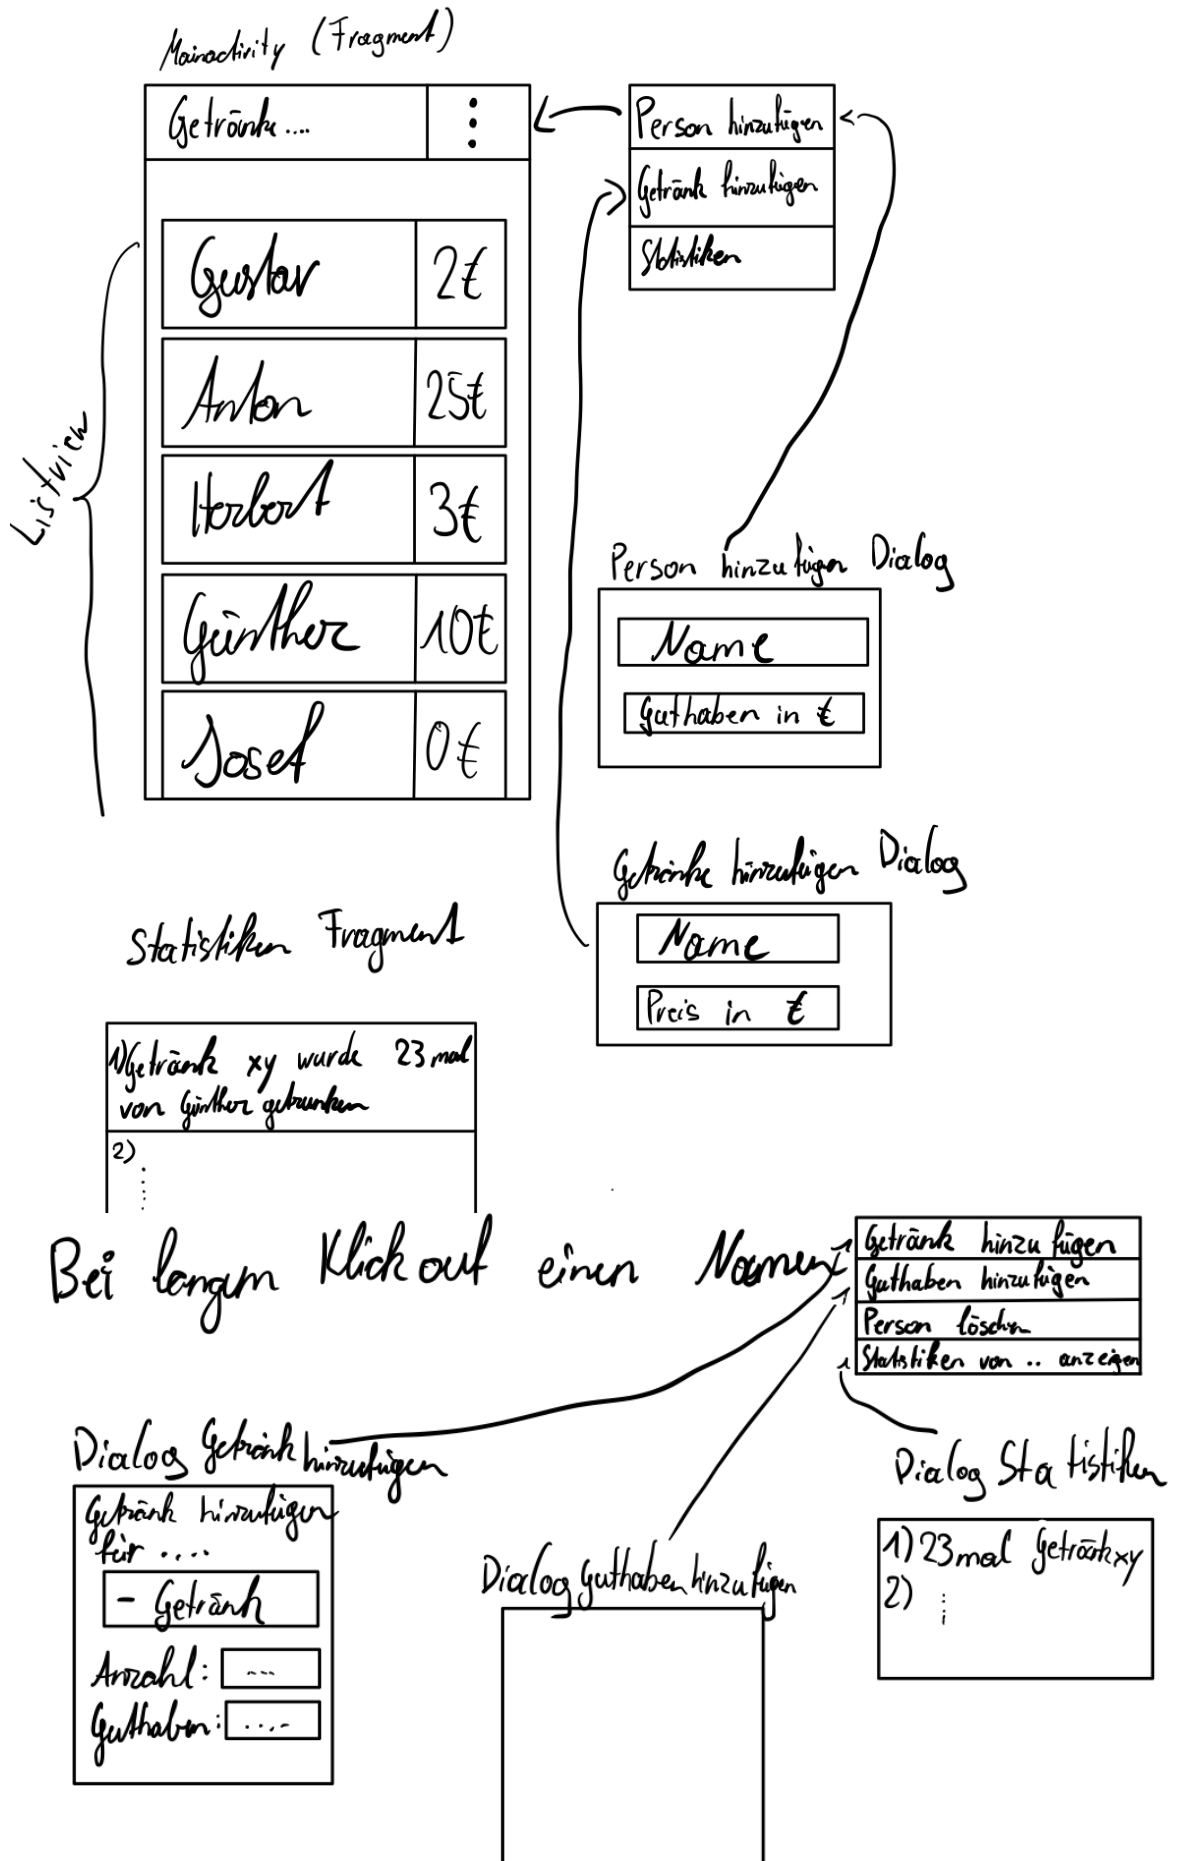 Mainactivity (Fragment)
Getränke....
Person hinzufügen
Getränk hinzufügen
Statistiken
Listview
Gustav 2€
Anton 25€
Herbert 3€
Günther 10€
Josef 0€
Person hinzufügen Dialog
Name
Guthaben in €
Getränke hinzufügen Dialog
Name
Preis in €
Statistiken Fragment
1) Getränk xy wurde 23 mal
von Günther getrunken
2)
Bei langem Klick auf einen Namen
Getränk hinzufügen
Guthaben hinzufügen
Person löschen
Statistiken von .. anzeigen
Dialog Getränk hinzufügen
Getränk hinzufügen
für ....
- Getränk
Anzahl: ---
Guthaben: ....
Dialog Guthaben hinzufügen
Dialog Statistiken
1) 23 mal Getränk xy
2)